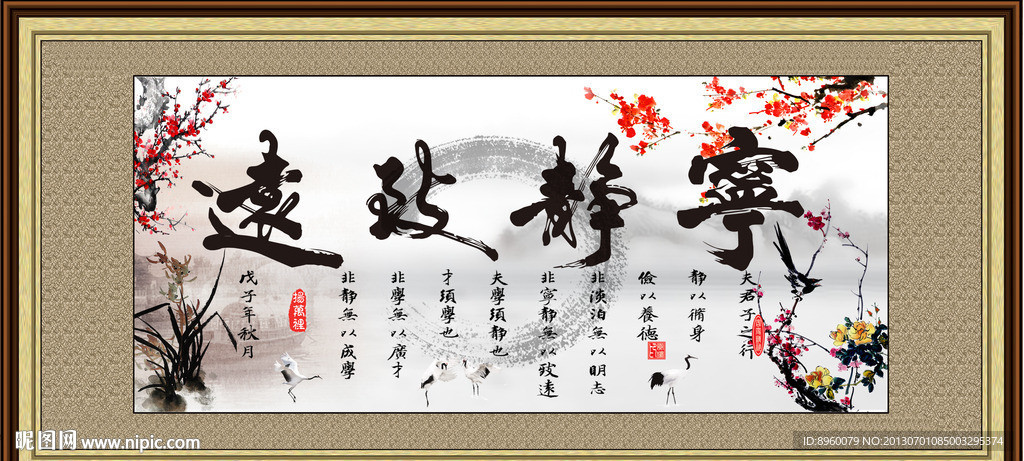 寧靜致遠
夫君子之行
靜以脩身
儉以養德
非淡泊無以明志
非寧靜無以致遠
夫學須靜也
才須學也
非學無以廣才
非靜無以成學
戊子年秋月
楊萬裡
昵图网 www.nipic.com
ID:8960079 NO:20130701085003295374